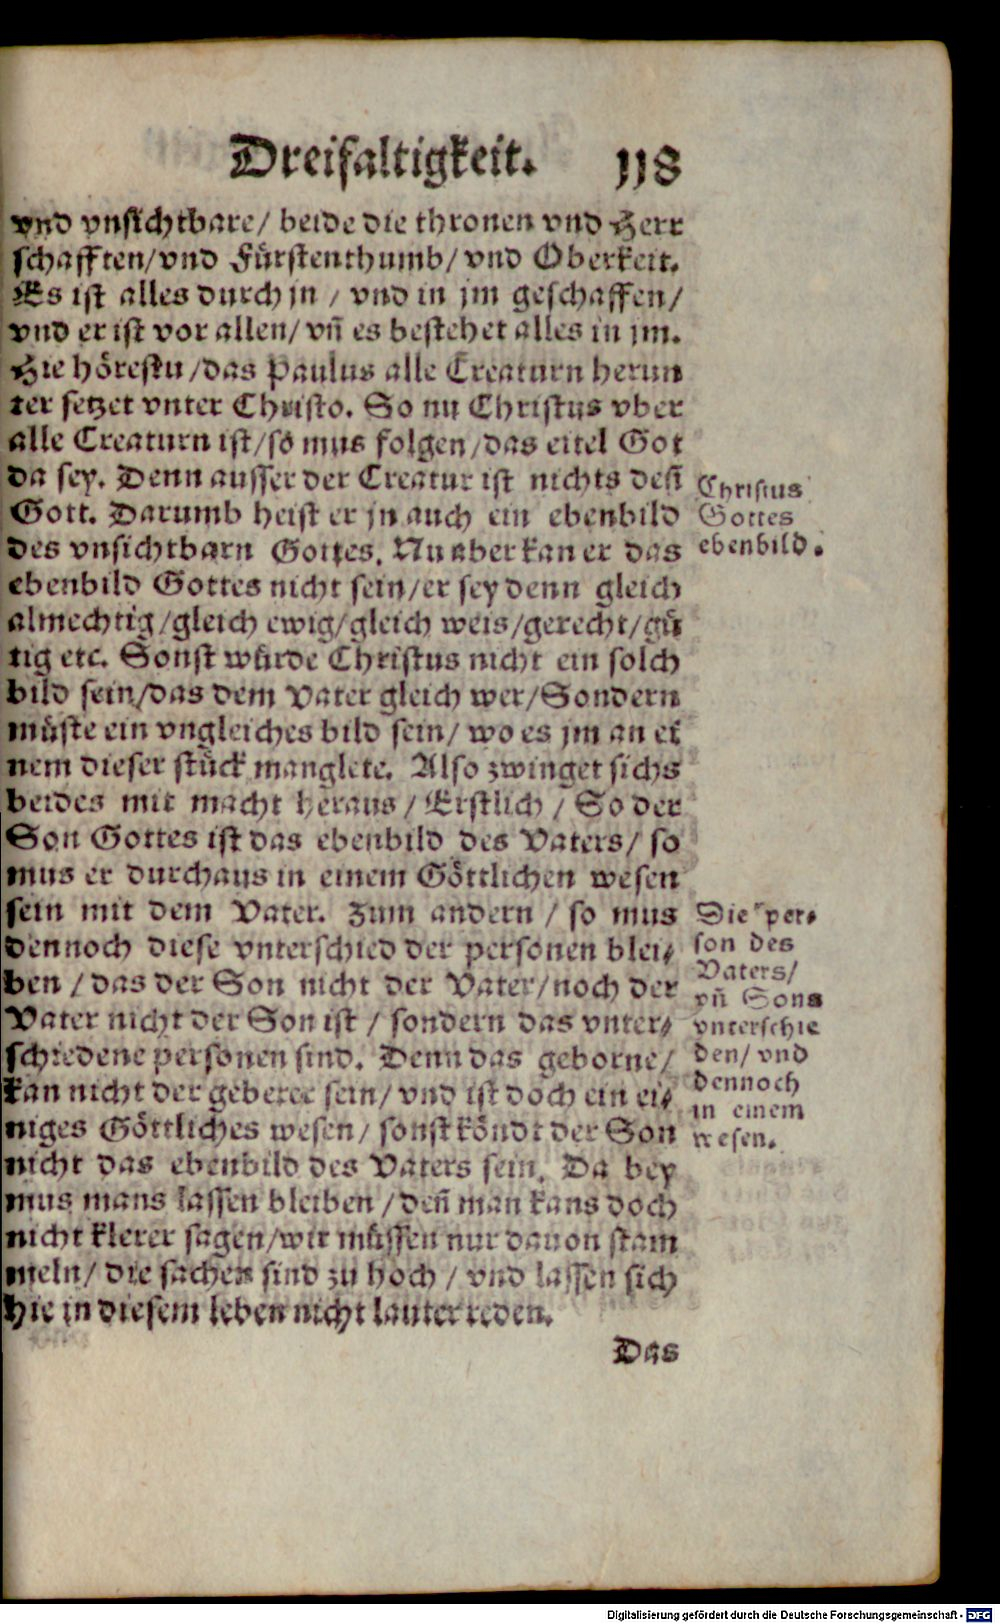 Dreifaltigkeit. 118
vnd vnsichtbare/ beide die thronen vnd Herr
schafften/vnd Fürstenthumb/ vnd Oberkeit.
Es ist alles durch jn / vnd in jm geschaffen/
vnd er ist vor allen/ vñ es bestehet alles in jm.
Hie hörestu/das Paulus alle Creaturn herun
ter setzet vnter Christo. So nu Christus vber
alle Creaturn ist/so mus folgen/das eitel Got
da sey. Denn ausser der Creatur ist nichts deñ
Gott. Darumb heist er jn auch ein ebenbild
des vnsichtbarn Gottes. Nu aber kan er das
ebenbild Gottes nicht sein/er sey denn gleich
almechtig/gleich ewig/gleich weis/gerecht/gü
tig etc. Sonst würde Christus nicht ein solch
bild sein/das dem Vater gleich wer/Sondern
müste ein vngleiches bild sein/ wo es jm an ei
nem dieser stück manglete. Also zwinget sichs
beides mit macht heraus / Erstlich / So der
Son Gottes ist das ebenbild des Vaters/ so
mus er durchaus in einem Göttlichen wesen
sein mit dem Vater. Zum andern / so mus
dennoch diese vnterschied der personen blei-
ben / das der Son nicht der Vater/noch der
Vater nicht der Son ist / sondern das vnter-
schiedene personen sind. Denn das geborne/
kan nicht der geberer sein/ vnd ist doch ein ei-
niges Göttliches wesen/ sonst köndt der Son
nicht das ebenbild des Vaters sein. Da bey
mus mans lassen bleiben / deñ man kans doch
nicht klerer sagen/wir müssen nur dauon stam
meln/ die sachen sind zu hoch / vnd lassen sich
hie in diesem leben nicht lauter reden.
Das
Christus
Gottes
ebenbild.
Die per-
son des
Vaters/
vñ Sons
vnterschie
den/ vnd
dennoch
in einem
wesen.
Digitalisierung gefördert durch die Deutsche Forschungsgemeinschaft - DFG